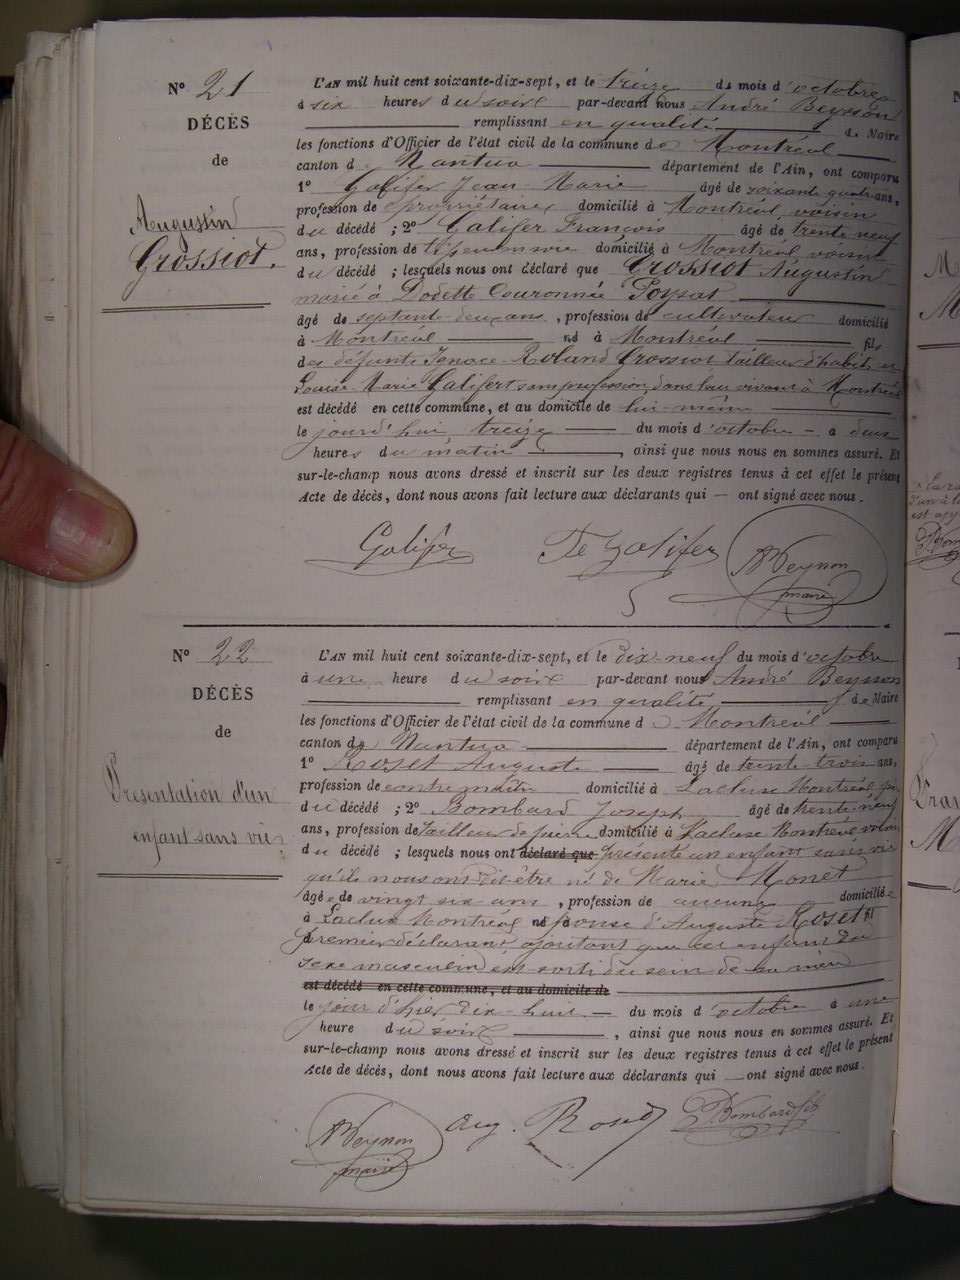 N° 21
DÉCÈS
de
Augustin
Grossiot.
L'AN mil huit cent soixante-dix-sept, et le treize du mois d'octobre
à six heures du soir par-devant nous André Beynon
remplissant en qualité de Maire
les fonctions d'Officier de l'état civil de la commune de Montréal
canton de Nantua département de l'Ain, ont comparu
1° Galifer Jean Marie âgé de soixante quatre ans,
profession de propriétaire domicilié à Montréal, voisin
du décédé ; 2° Galifer François âgé de trente neuf
ans, profession de domicilié à Montréal, voisin
du décédé ; lesquels nous ont déclaré que Grossiot Augustin
marié à Dodette Couronnée Poysat
âgé de septante deux ans, profession de cultivateur domicilié
à Montréal né à Montréal fils
des défunts Ignace Roland Grossiot tailleur d'habits, et
Louise Marie Galifert sans profession, dans leur vivant à Montréal
est décédé en cette commune, et au domicile de lui-même
le jourd'hui treize du mois d'octobre à deux
heures du matin, ainsi que nous nous en sommes assuré. Et
sur-le-champ nous avons dressé et inscrit sur les deux registres tenus à cet effet le présent
Acte de décès, dont nous avons fait lecture aux déclarants qui — ont signé avec nous.
Galifer Galifer ABeynon
maire
N° 22
DÉCÈS
de
Présentation d'un
enfant sans vie
L'AN mil huit cent soixante-dix-sept, et le dix-neuf du mois d'octobre
à une heure du soir par-devant nous André Beynon
remplissant en qualité de Maire
les fonctions d'Officier de l'état civil de la commune de Montréal
canton de Nantua département de l'Ain, ont comparu
1° Roset Auguste âgé de trente trois ans,
profession de contremaître domicilié à Lacluse Montréal
du décédé ; 2° Bombard Joseph âgé de trente neuf
ans, profession de tailleur de pierre domicilié à Lacluse Montréal voisin
du décédé ; lesquels nous ont déclaré que présenté un enfant sans vie
qu'ils nous ont dit être né de Marie Monet
âgée de vingt six ans, profession de aucune domiciliée
à Lacluse Montréal épouse d'Auguste Roset
premier déclarant, ajoutant que cet enfant du
sexe masculin est sorti du sein de sa mère
est décédé en cette commune, et au domicile de
le jour d'hier dix-huit du mois d'octobre à une
heure du soir, ainsi que nous nous en sommes assuré. Et
sur-le-champ nous avons dressé et inscrit sur les deux registres tenus à cet effet le présent
Acte de décès, dont nous avons fait lecture aux déclarants qui — ont signé avec nous.
ABeynon Aug. Roset Bombard
maire